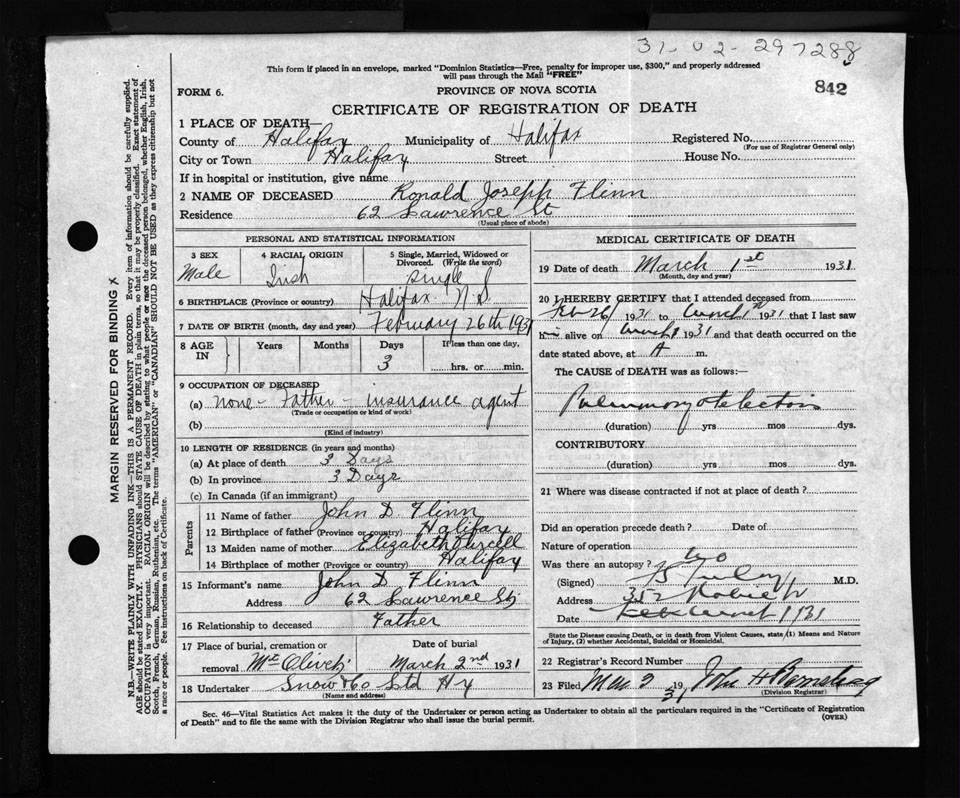 31-02-297288
This form if placed in an envelope, marked "Dominion Statistics—Free, penalty for improper use, $300," and properly addressed
will pass through the Mail "FREE"
FORM 6.
PROVINCE OF NOVA SCOTIA
842
CERTIFICATE OF REGISTRATION OF DEATH
1 PLACE OF DEATH—
County of Halifax Municipality of Halifax Registered No.
(For use of Registrar General only)
City or Town Halifax Street House No.
If in hospital or institution, give name
2 NAME OF DECEASED Ronald Joseph Flinn
Residence 62 Lawrence St
(Usual place of abode)
PERSONAL AND STATISTICAL INFORMATION
3 SEX Male
4 RACIAL ORIGIN Irish
5 Single, Married, Widowed or Divorced. (Write the word) Single
6 BIRTHPLACE (Province or country) Halifax N.S.
7 DATE OF BIRTH (month, day and year) February 26th 1931
8 AGE IN Years Months Days 3 If less than one day, hrs. or min.
9 OCCUPATION OF DECEASED
(a) none - Father - insurance agent
(Trade or occupation or kind of work)
(b)
(Kind of industry)
10 LENGTH OF RESIDENCE (in years and months)
(a) At place of death 3 Days
(b) In province 3 Days
(c) In Canada (if an immigrant)
Parents
11 Name of father John D Flinn
12 Birthplace of father (Province or country) Halifax
13 Maiden name of mother Elizabeth Purcell
14 Birthplace of mother (Province or country) Halifax
15 Informant's name John D Flinn
Address 62 Lawrence St
16 Relationship to deceased Father
17 Place of burial, cremation or removal Mt Olivet Date of burial March 2nd 1931
18 Undertaker Snow & Co Ltd Hx
(Name and address)
MEDICAL CERTIFICATE OF DEATH
19 Date of death March 1st 1931
(Month, day and year)
20 I HEREBY CERTIFY that I attended deceased from
Feb 26/ 1931 to March 1st 1931 that I last saw
him alive on March 1 1931 and that death occurred on the
date stated above, at A m.
The CAUSE of DEATH was as follows:—
Pulmonary atelectasis
(duration) yrs mos dys.
CONTRIBUTORY
(duration) yrs mos dys.
21 Where was disease contracted if not at place of death?
Did an operation precede death? Date of
Nature of operation
Was there an autopsy? No
(Signed) M.D.
Address 352 Robie St
Date 1/31
State the Disease causing Death, or in death from Violent Causes, state (1) Means and Nature
of Injury, (2) whether Accidental, Suicidal or Homicidal.
22 Registrar's Record Number
23 Filed Mar 3 1931 John H
(Division Registrar)
Sec. 46—Vital Statistics Act makes it the duty of the Undertaker or person acting as Undertaker to obtain all the particulars required in the "Certificate of Registration
of Death" and to file the same with the Division Registrar who shall issue the burial permit.
(OVER)
MARGIN RESERVED FOR BINDING X
N.B.—WRITE PLAINLY WITH UNFADING INK—THIS IS A PERMANENT RECORD. Every item of information should be carefully supplied.
AGE should be stated EXACTLY. PHYSICIANS should STATE CAUSE OF DEATH in plain terms, so that it may be properly classified. Exact statement of
OCCUPATION is very important. RACIAL ORIGIN will be described by stating to what people or race the deceased person belonged, whether English, Irish,
Scotch, French, German, Russian, Ruthenian, etc. The terms "AMERICAN" or "CANADIAN" SHOULD NOT BE USED as they express citizenship but not
a race or people. See instructions on back of Certificate.